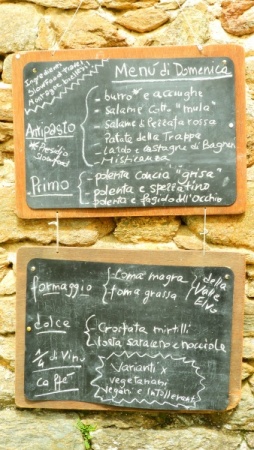 Ingredienti
Slow Food Travel
Montagne biellesi
Menù di Domenica
Antipasto
- burro e acciughe
- salame cotto "mula"
- Salame di Patata rossa
- Patata della Trappa
- Lardo e castagne di Bagneri
- Misticanza
* Presidio
Slowfood
Primo
- polenta concia "grisa"
- polenta e spezzatino
- polenta e fagioli dell'Occhio
formaggio
- toma magra
- toma grassa
della
Valle
Elvo
dolce
- Crostata mirtilli
- torta saraceno e nocciole
1/4 di Vino
caffè
Varianti x
vegetariani
vegani e intolleranti